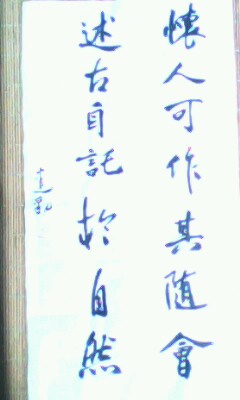 懷人可作其隨會
述古自託於自然